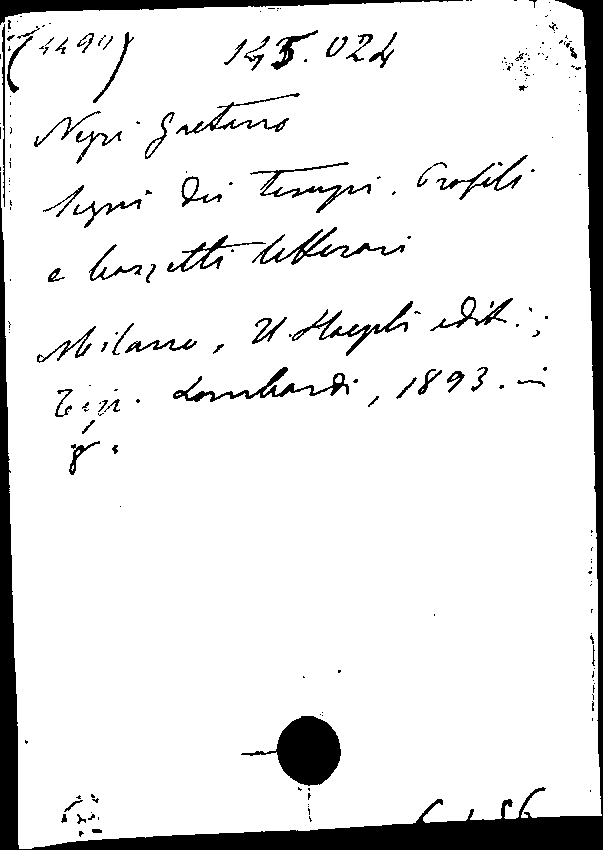 (4490) 145.024
Negri Gaetano
Segni dei tempi. Profili
e bozzetti letterari
Milano, U. Hoepli edit.;
Tip. Lombardi, 1893. in
8°.